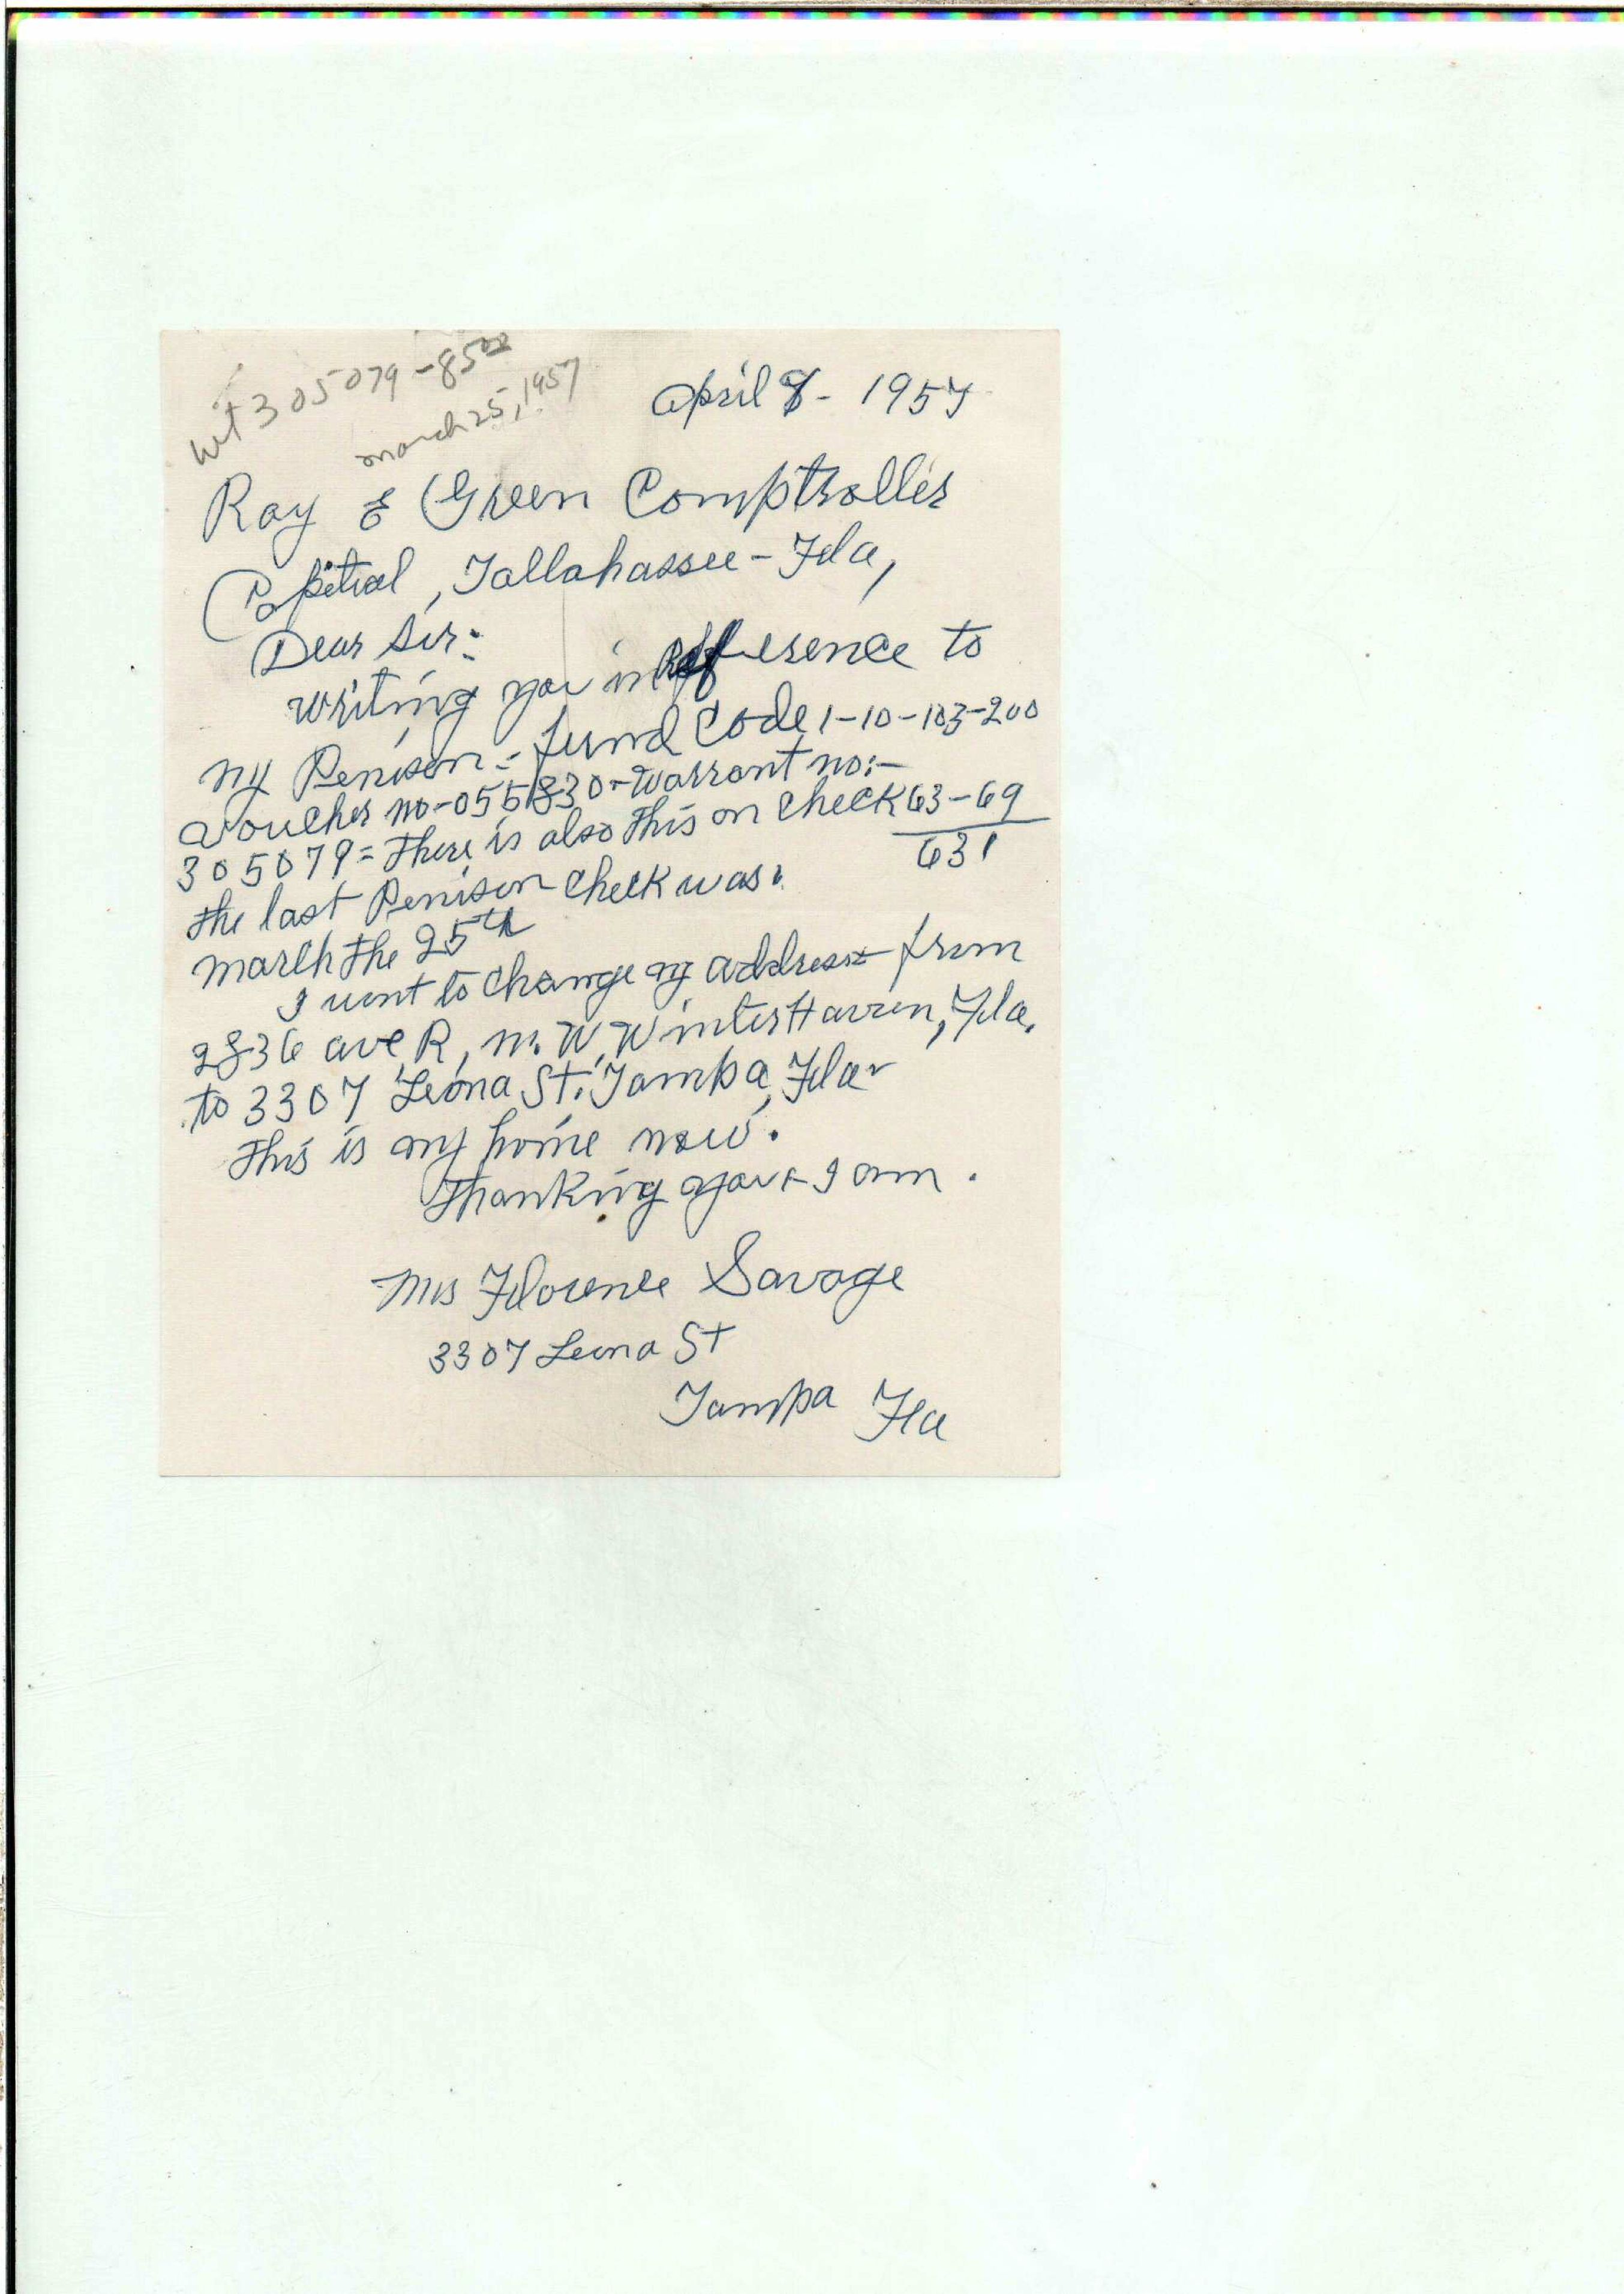 wt 305079 - 85⁰⁰
March 25, 1957
April 8 - 1957
Ray E Green Comptroller
Capitial, Tallahassee - Fla,
Dear Sir:
Writing you in Refference to
my Penison = fund Code 1-10-103-200
Voucher no - 055830 - Warrant no: -
305079 = There is also This on Check 63-69
631
The last Penison Check was:
March the 25th
I want to change my address from
2836 Ave R, N.W. Winter Haven, Fla.
to 3307 Leona St. Tampa, Fla -
This is my home now.
Thanking you - I am.
Mrs Florence Savage
3307 Leona St
Tampa Fla